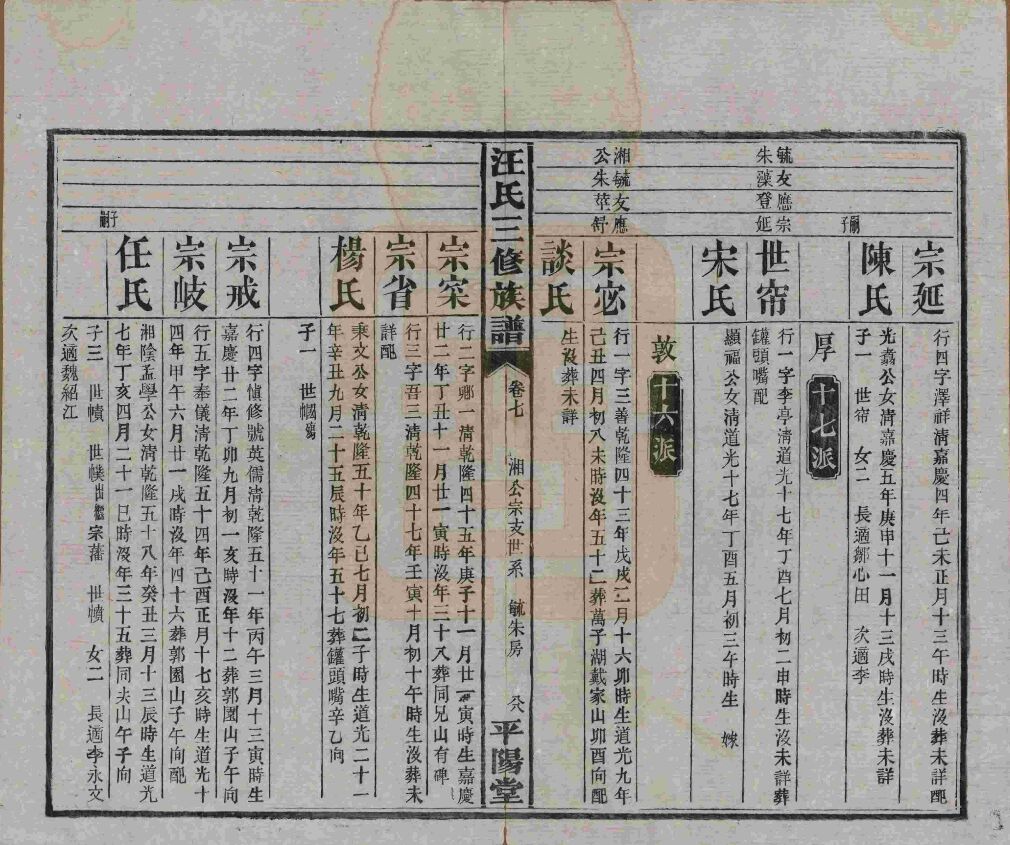 宗延
行四字澤祥清嘉慶四年己未正月十三午時生沒葬未詳配
嗣子
陳氏
光燾公女清嘉慶五年庚申十一月十三戌時生沒葬未詳
子一 世帘 女二 長適鄒心田 次適李
厚 十七派
毓友應宗
朱藻登延
世帘
行一字李亭清道光十七年丁酉七月初二申時生沒未詳葬
罐頭嘴配
宋氏
顯福公女清道光十七年丁酉五月初三午時生 嫁
敦 十六派
湘毓友應
公朱莖舒
宗宓
行一字三善乾隆四十三年戊戌二月十六卯時生道光九年
己丑四月初八未時沒年五十二葬萬子湖戴家山卯酉向配
談氏
生沒葬未詳
汪氏三修族譜
卷七
湘公宗支世系 毓朱房
平陽堂
宗寀
行二字鄉一清乾隆四十五年庚子十一月廿二寅時生嘉慶
廿二年丁丑十一月廿一寅時沒年三十八葬同兄山有碑
宗省
行三字吾三清乾隆四十七年壬寅十月初十午時生沒葬未
詳配
楊氏
乘文公女清乾隆五十年乙巳七月初二子時生道光二十一
年辛丑九月二十五辰時沒年五十七葬罐頭嘴辛乙向
子一 世幗殤
宗戒
行四字慎修號英儒清乾隆五十一年丙午三月十三寅時生
嘉慶廿二年丁卯九月初一亥時沒年十二葬郭園山子午向
宗岐
行五字奉儀清乾隆五十四年己酉正月十七亥時生道光十
四年甲午六月廿一戌時沒年四十六葬郭園山子午向配
嗣子
任氏
湘陰孟學公女清乾隆五十八年癸丑三月十三辰時生道光
七年丁亥四月二十一巳時沒年三十五葬同夫山午子向
子三 世幘 世幞出繼宗藩 世幩 女二 長適李永文
次適魏紹江